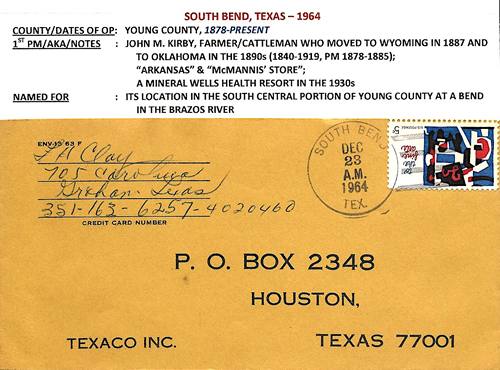 SOUTH BEND, TEXAS – 1964
COUNTY/DATES OF OP: YOUNG COUNTY, 1878-PRESENT
1ST PM/AKA/NOTES : JOHN M. KIRBY, FARMER/CATTLEMAN WHO MOVED TO WYOMING IN 1887 AND
TO OKLAHOMA IN THE 1890s (1840-1919, PM 1878-1885);
“ARKANSAS” & “McMANNIS’ STORE”;
A MINERAL WELLS HEALTH RESORT IN THE 1930s
NAMED FOR : ITS LOCATION IN THE SOUTH CENTRAL PORTION OF YOUNG COUNTY AT A BEND
IN THE BRAZOS RIVER
ENV-13 63 F
Clay
705 Carolina
Graham, Texas
351-163-6257-4020460
CREDIT CARD NUMBER
SOUTH BEND
DEC
23
A.M.
1964
TEX.
5c
to the
fine arts
P. O. BOX 2348
HOUSTON,
TEXACO INC.
TEXAS 77001